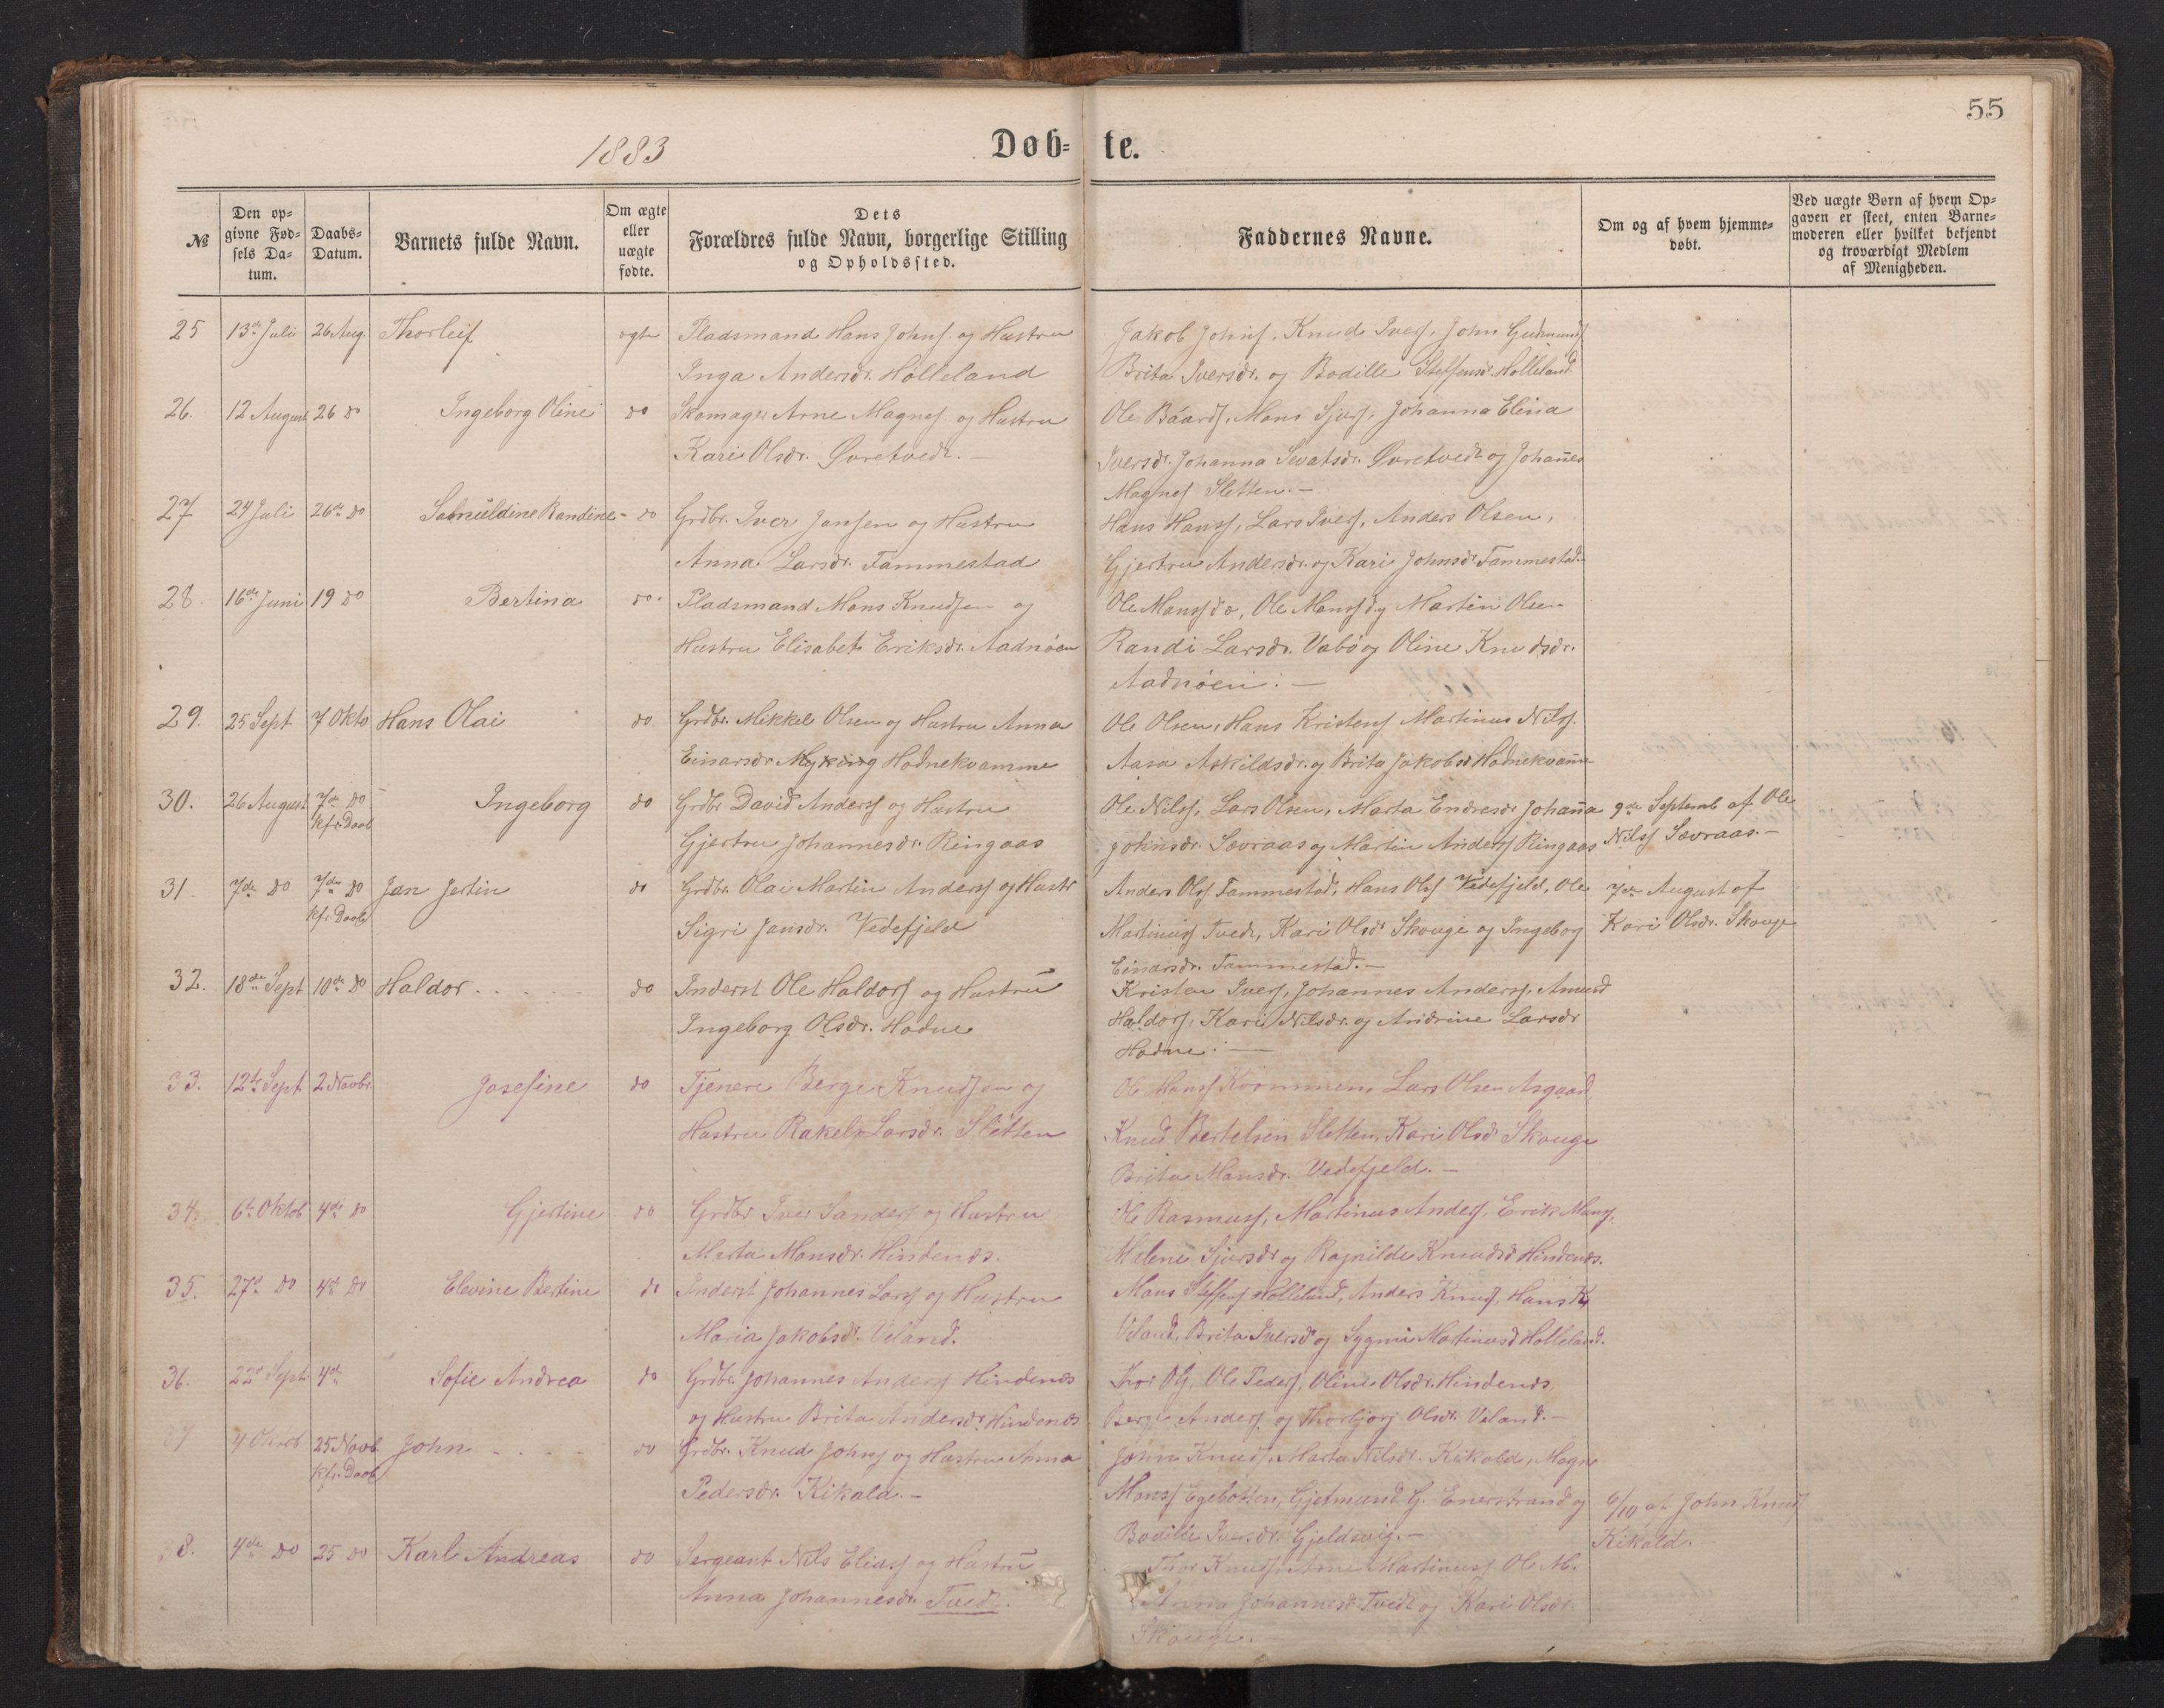 55
1883
Døb=te.
№
Den op=
givne Fød=
sels Da=
tum.
Daabs=
Datum.
Barnets fulde Navn.
Om ægte
eller
uægte
fødte.
Dets
Forældres fulde Navn, borgerlige Stilling
og Opholdssted.
Faddernes Navne.
Om og af hvem hjemme=
døbt.
Ved uægte Børn af hvem Op=
gaven er skeet, enten Barne=
moderen eller hvilket bekjendt
og troværdigt Medlem
af Menigheden.
25 13de Juli 26 Aug. Thorleif ægte Pladsmand Hans Johns. og Hustru
Inga Andersdr. Holleland
Jakob Johns. Knud Ivers. John Gudmunds
Brita Iversdr. og Bodille Steffensdr. Holleland
26. 12 August 26 do Ingeborg Oline do Skomager Arne Magnes. og Hustru
Kari Olsdr. Øvretvedt.
Ole Baards. Mons Sjurs. Johanna Elina
Iversdr. Johanna Sevatsdr. Øvretvedt og Johañes
Magnes Sletten.
27 24 Juli 26de do Randine do Grdbr. Iver Jansen og Hustru
Anna Larsdr. Fammestad
Hans Hanss, Lars Ivers, Anders Olsen,
Gjertru Andersdr. og Kari Johnsdr. Fammestad
28. 16de Juni 19 do Bertina do. Pladsmand Mons Knudsen og
Hustru Elisabet Eriksdr. Aadnøen
Ole Monss do, Ole Monss og Martin Olsen
Randi Larsdr. Vabø og Oline Knudsdr.
Aadnøen.
29. 25 Sept 7 Okto Hans Olai do Grdbr. Mikkel Olsen og Hustru Anna
Einarsdr. Myking Hodnekvamme
Ole Olsen, Hans Kristens Martinus Nilss.
Aasa Askildsdr. og Brita Jakobsd Hodnekvam̃e
30. 26 August 7de do
kfr. Daab
Ingeborg do Grdbr. David Anderss og Hustru
Gjertru Johannesdr. Ringaas
Ole Nilss, Lars Olsen, Marta Endresdr Johañna
Johnsdr. Sævraas og Martin Anderss Ringaas
9de Septemb af Ole
Nilss Sævraas.
31. 7de do 7de do
kfr. Daab
Jan Jertin do Grdbr. Olai Martin Anderss og Hustr
Sigri Jansdr. Vedefjeld
Anders Olss Fammestad, Hans Olss Vedefjeld, Ole
Martinuss Tvedt, Kari Olsdr Skouge og Ingebog
Einarsdr. Fammestad.
7de August af
Kari Olsdr. Skouge
32. 18de Sept 10de do Haldor do Inderst Ole Haldors og Hustru
Ingeborg Olsdr. Hodne
Kristen Ivers, Johannes Anderss, Amund
Haldors, Kari Nilsdr. og Andrine Larsdr
Hodne.
33. 12te Sept 2 Novbr. Josefine do Tjener Berge Knudsen og
Hustru Rakel Larsdr. Sletten
Ole Hanss Kvammen, Lars Olsen Asgaard
Knud Bertelsen Sletten, Kari Olsdr Skouge
Brita Mansdr. Vedefjeld.
34. 6te Oktob 4de do Gjertine do Grdbr Iver Sanders og Hustru
Marta Monsdr. Hindenes.
Ole Rasmuss, Martinus Anders, Erik Mons
Malene Sjursdr og Ragnilde Knudsd Hindenes.
35. 27d do 4de do Elevine Bertine do Inderst Johannes Larss og Hustru
Maria Jakobsdr. Veland.
Mons Steffens Holleland, Anders Knuds, Hans K
Veland, Brita Iversdr og Martinusd Holleland.
36. 22d Sept. 4de Sofie Andrea do Grdbr. Johannes Anderss Hindenes
og Hustru Brita Andersdr Hindenes
Ole Peders, Oline Olsdr. Hindenes
Berge Anders og Thorbjørg Olsdr. Veland.
37 4 Oktob 25 Novb.
kfr. Daab
John do Grdbr. Knud Johns og Hustru Anna
Pedersdr. Kikald.
John Knuds. Marta Nilsdr. Kikald, Magne
Monss Egebotten, Gjetmund G. Enerstrand og
Bodille Iversdr. Gjeldsvig.
6/10 af John Knuds
Kikald.
8. 4de do 25 do Karl Andreas do Sergeant Nils Eliass og Hustru
Anna Johannesdr. Tvedt.
Thor Knuds. Arne Martinuss Ole M.
Anna Johannesd Tvedt og Kari Olsdr
Skouge.